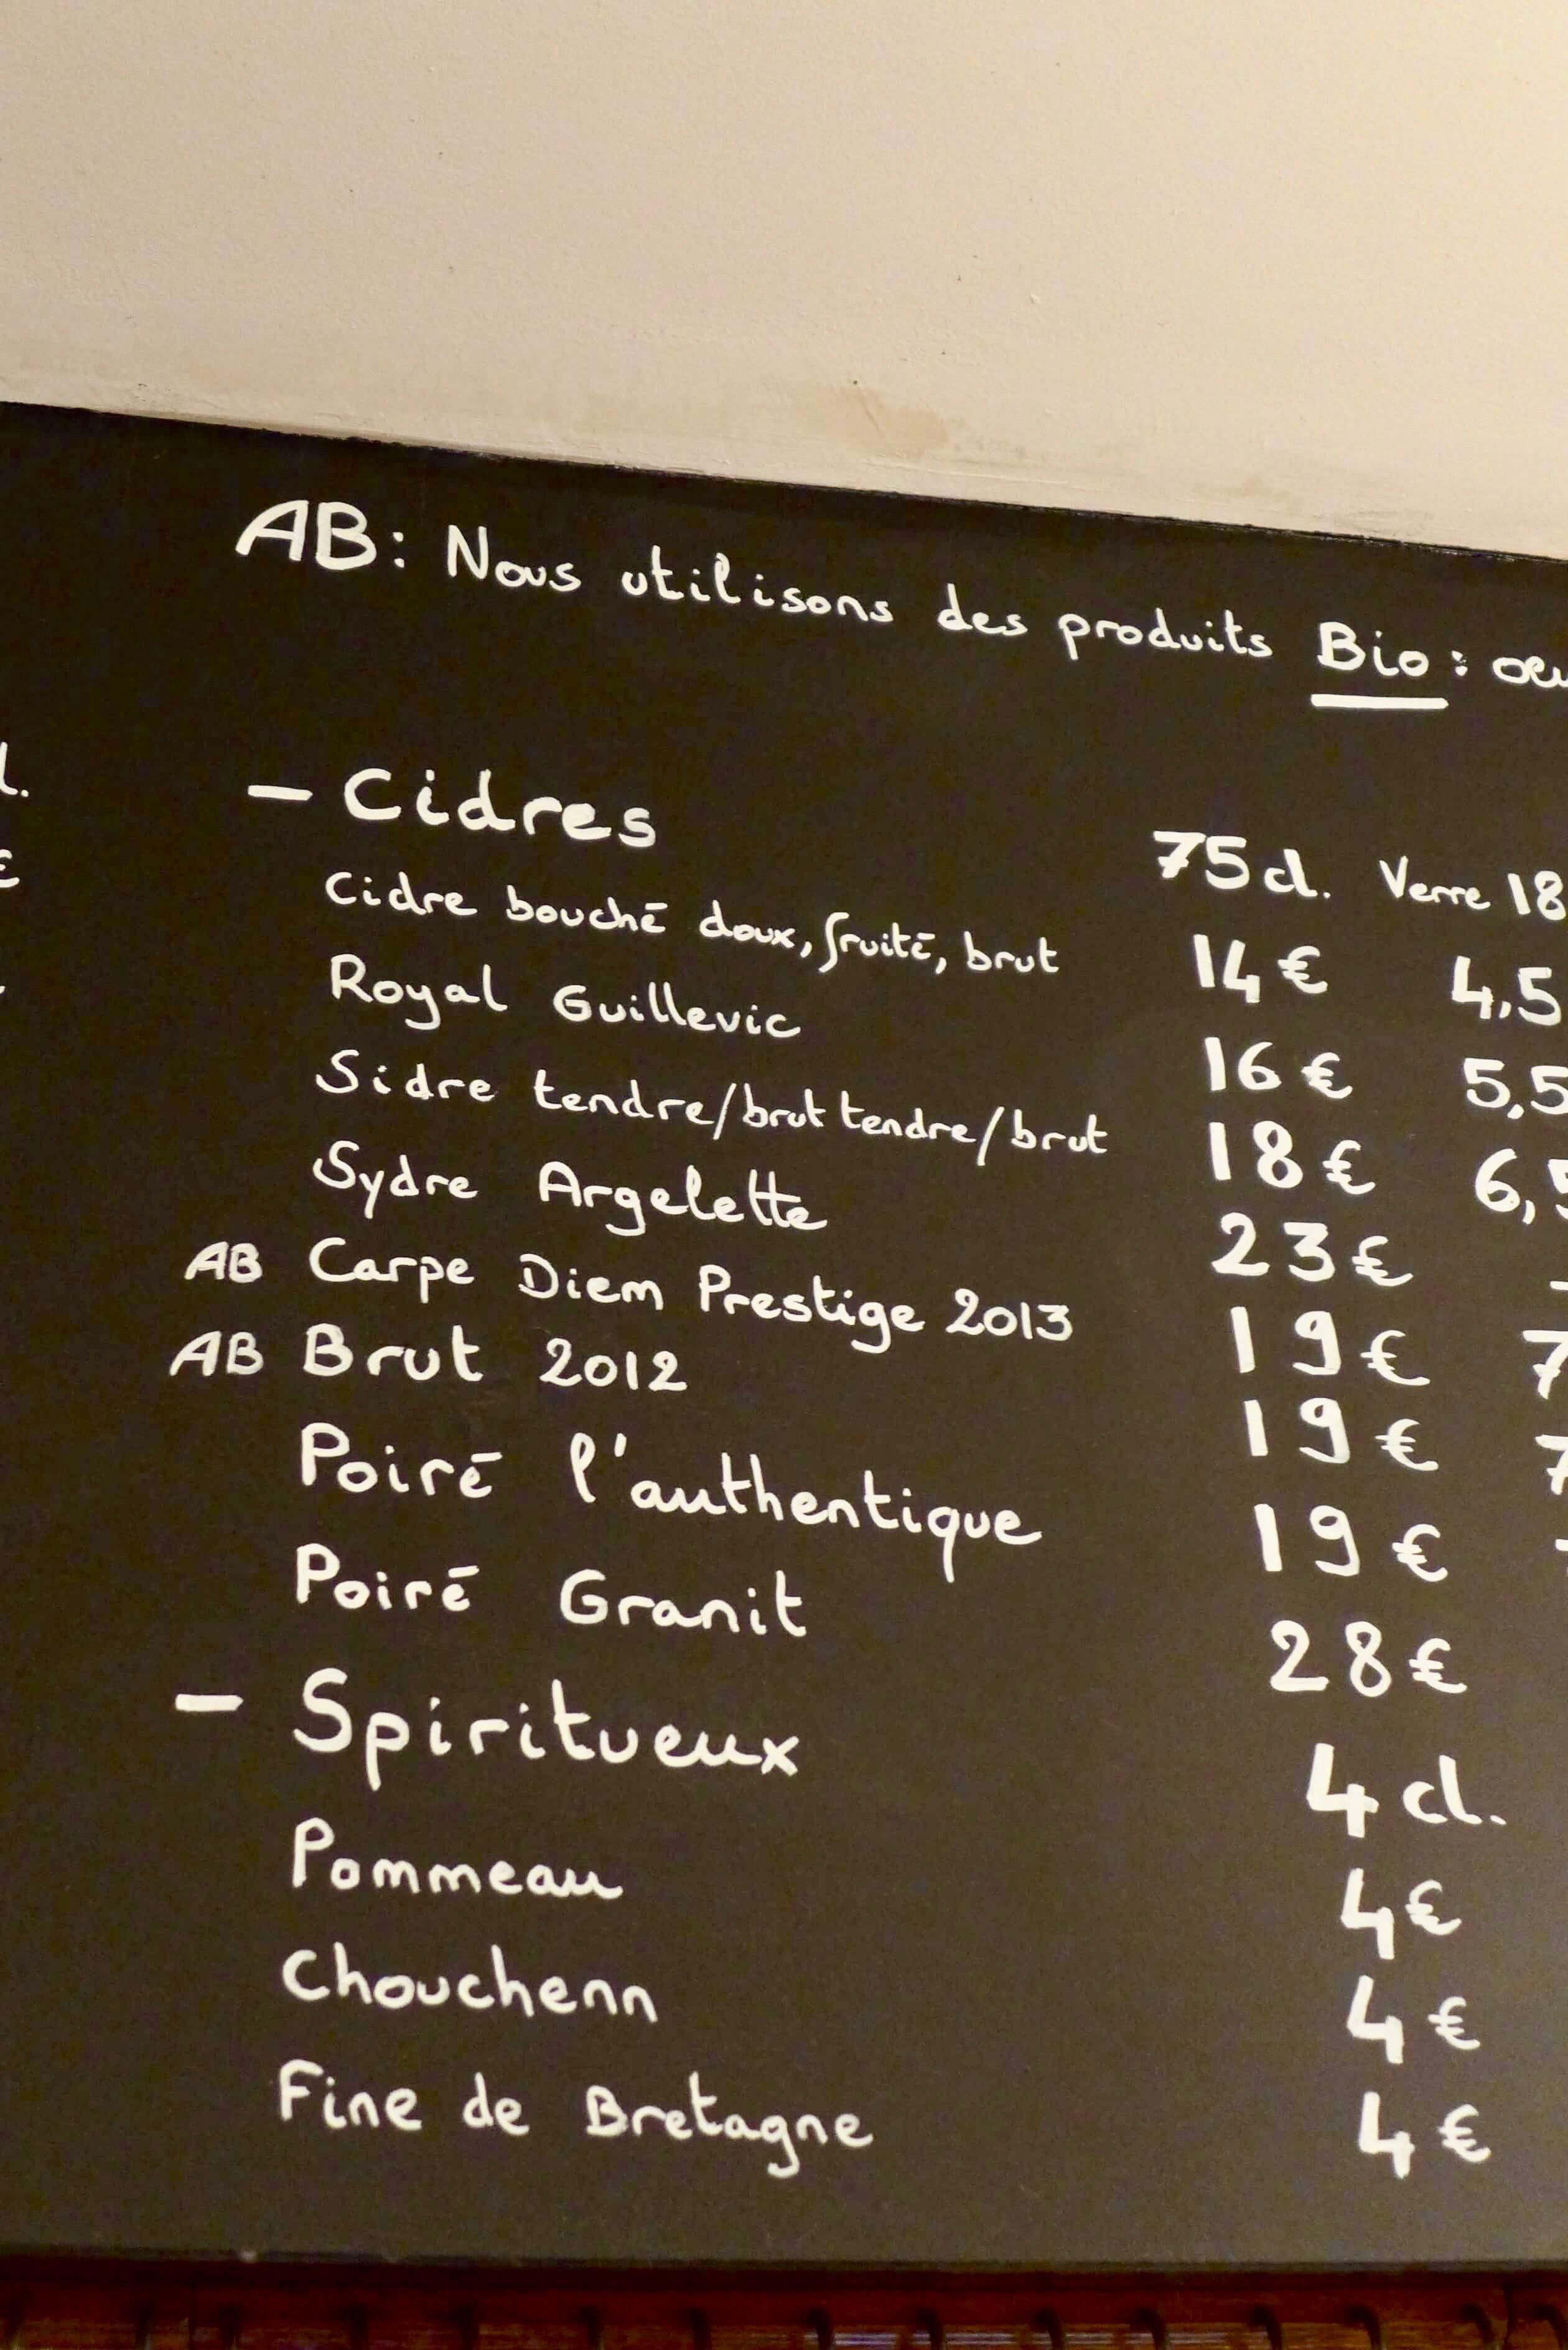 AB: Nous utilisons des produits Bio:
- Cidres 75 cl. Verre 18
Cidre bouché doux, fruité, brut 14€ 4,5
Royal Guillevic 16€ 5,5
Sidre tendre/brut tendre/brut 18€ 6,5
Sydre Argelette 23€
AB Carpe Diem Prestige 2013 19€ 7
AB Brut 2012 19€ 7
Poiré l'authentique 19€
Poiré Granit 28€
- Spiritueux 4 cl.
Pommeau 4€
Chouchenn 4€
Fine de Bretagne 4€